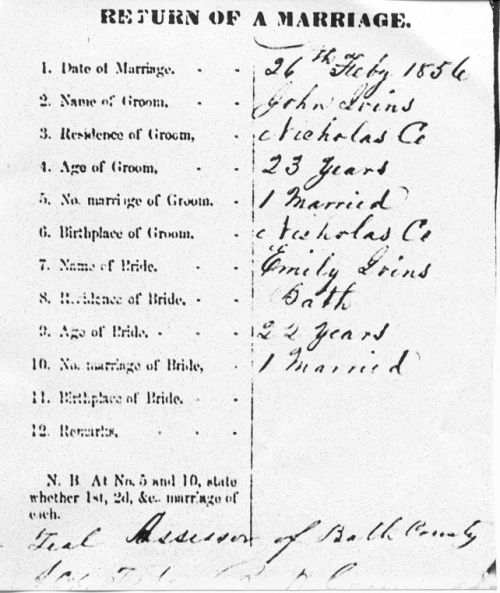 RETURN OF A MARRIAGE.
1. Date of Marriage. - - 26th Feby 1856
2. Name of Groom. - - John Ivins
3. Residence of Groom, - Nicholas Co
4. Age of Groom, - - 23 Years
5. No. marriage of Groom. - 1 Married
6. Birthplace of Groom. - Nicholas Co
7. Name of Bride. - - Emily Ivins
8. Residence of Bride. - - Bath
9. Age of Bride. - - - 22 Years
10. No. marriage of Bride, - 1 Married
11. Birthplace of Bride. - -
12. Remarks. - - -
N. B. At No. 5 and 10, state
whether 1st, 2d, &c. marriage of
each.
Assessor of Bath County